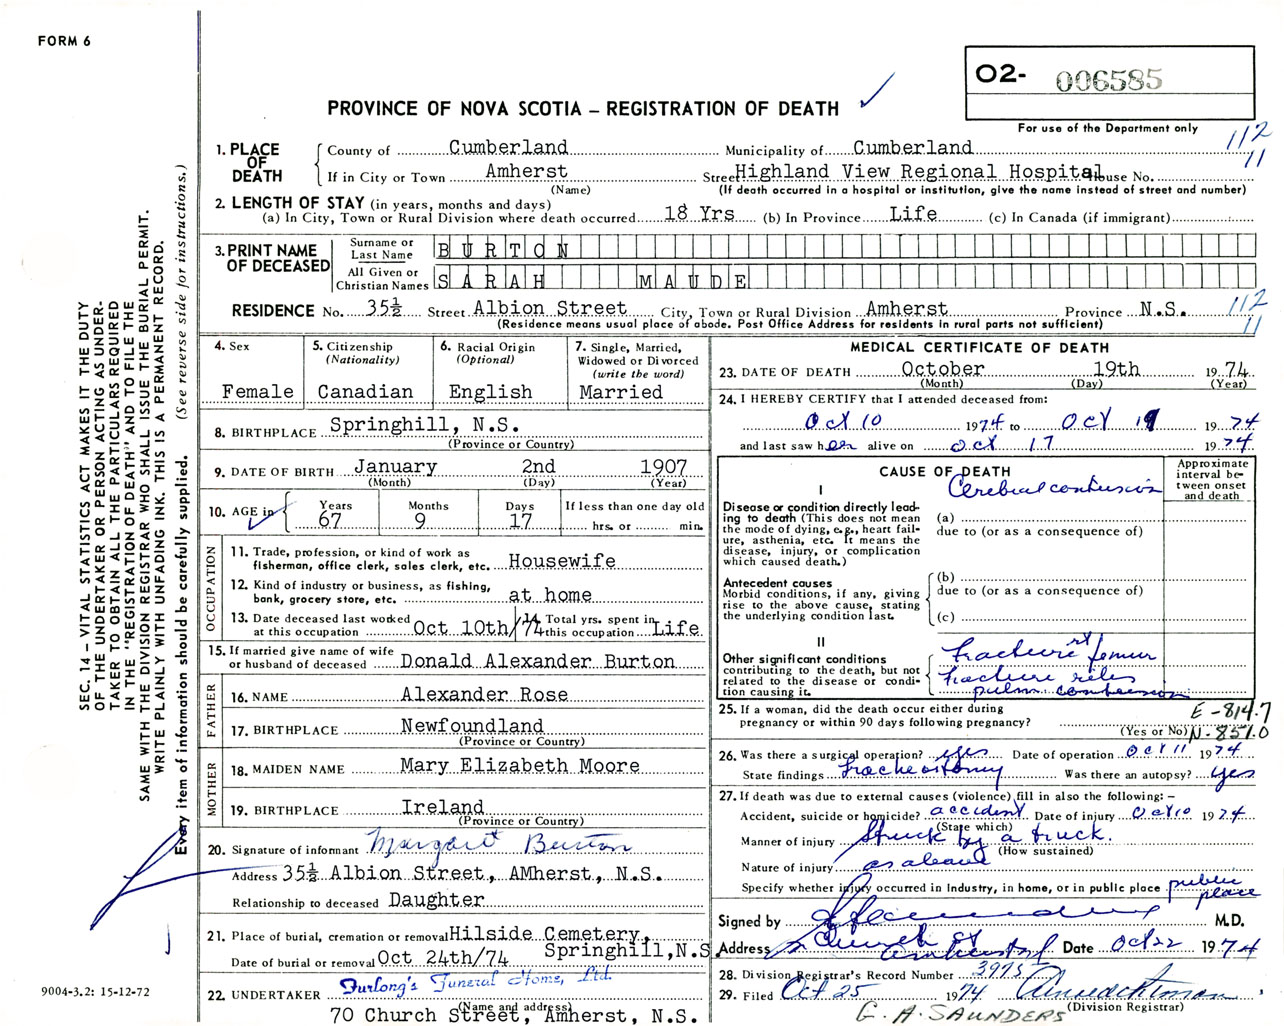 FORM 6
O2- 006585
PROVINCE OF NOVA SCOTIA – REGISTRATION OF DEATH
For use of the Department only
1. PLACE OF DEATH
County of Cumberland Municipality of Cumberland 112
If in City or Town Amherst Street Highland View Regional Hospital House No. 11
(Name) (If death occurred in a hospital or institution, give the name instead of street and number)
2. LENGTH OF STAY (in years, months and days)
(a) In City, Town or Rural Division where death occurred 18 Yrs (b) In Province Life (c) In Canada (if immigrant)
3. PRINT NAME OF DECEASED
Surname or Last Name BURTON
All Given or Christian Names SARAH MAUDE
RESIDENCE No. 35½ Street Albion Street City, Town or Rural Division Amherst Province N.S. 112
(Residence means usual place of abode. Post Office Address for residents in rural parts not sufficient) 11
SEC. 14 – VITAL STATISTICS ACT MAKES IT THE DUTY
OF THE UNDERTAKER OR PERSON ACTING AS UNDER-
TAKER TO OBTAIN ALL THE PARTICULARS REQUIRED
IN THE "REGISTRATION OF DEATH" AND TO FILE THE
SAME WITH THE DIVISION REGISTRAR WHO SHALL ISSUE THE BURIAL PERMIT.
WRITE PLAINLY WITH UNFADING INK. THIS IS A PERMANENT RECORD.
Every item of information should be carefully supplied. (See reverse side for instructions.)
4. Sex
Female
5. Citizenship
(Nationality)
Canadian
6. Racial Origin
(Optional)
English
7. Single, Married,
Widowed or Divorced
(write the word)
Married
8. BIRTHPLACE Springhill, N.S.
(Province or Country)
9. DATE OF BIRTH January 2nd 1907
(Month) (Day) (Year)
10. AGE in
Years Months Days If less than one day old
67 9 17 hrs. or min.
OCCUPATION
11. Trade, profession, or kind of work as
fisherman, office clerk, sales clerk, etc. Housewife
12. Kind of industry or business, as fishing,
bank, grocery store, etc. at home
13. Date deceased last worked
at this occupation Oct 10th/74
14. Total yrs. spent in
this occupation Life
15. If married give name of wife
or husband of deceased Donald Alexander Burton
FATHER
16. NAME Alexander Rose
17. BIRTHPLACE Newfoundland
(Province or Country)
MOTHER
18. MAIDEN NAME Mary Elizabeth Moore
19. BIRTHPLACE Ireland
(Province or Country)
20. Signature of informant Margaret Burton
Address 35½ Albion Street, AMherst, N.S.
Relationship to deceased Daughter
21. Place of burial, cremation or removal Hilside Cemetery,
Springhill, N.S
Date of burial or removal Oct 24th/74
22. UNDERTAKER Furlong's Funeral Home, Ltd.
(Name and address)
70 Church Street, Amherst, N.S.
MEDICAL CERTIFICATE OF DEATH
23. DATE OF DEATH October 19th 1974
(Month) (Day) (Year)
24. I HEREBY CERTIFY that I attended deceased from:
Oct 10 1974 to Oct 19 1974
and last saw her alive on Oct 17 1974
CAUSE OF DEATH
Approximate
interval be-
tween onset
and death
I
Cerebral contusion
Disease or condition directly lead-
ing to death (This does not mean
the mode of dying, e.g., heart fail-
ure, asthenia, etc. It means the
disease, injury, or complication
which caused death.)
(a)
due to (or as a consequence of)
Antecedent causes
Morbid conditions, if any, giving
rise to the above cause, stating
the underlying condition last.
(b)
due to (or as a consequence of)
(c)
II
Other significant conditions
contributing to the death, but not
related to the disease or condi-
tion causing it.
fracture rt femur
fracture ribs
pulm contusion
25. If a woman, did the death occur either during
pregnancy or within 90 days following pregnancy?
(Yes or No)
E-814.7
N-851.0
26. Was there a surgical operation? yes Date of operation Oct 11 1974
State findings tracheotomy Was there an autopsy? yes
27. If death was due to external causes (violence) fill in also the following: –
Accident, suicide or homicide? accident Date of injury Oct 10 1974
(State which)
Manner of injury Struck by a truck.
(How sustained)
Nature of injury as above
Specify whether injury occurred in Industry, in home, or in public place public place
Signed by M.D.
Address Church St Amherst Date Oct 22 1974
28. Division Registrar's Record Number 3975
29. Filed Oct 25 1974
(Division Registrar)
G. A. SAUNDERS
9004-3.2: 15-12-72